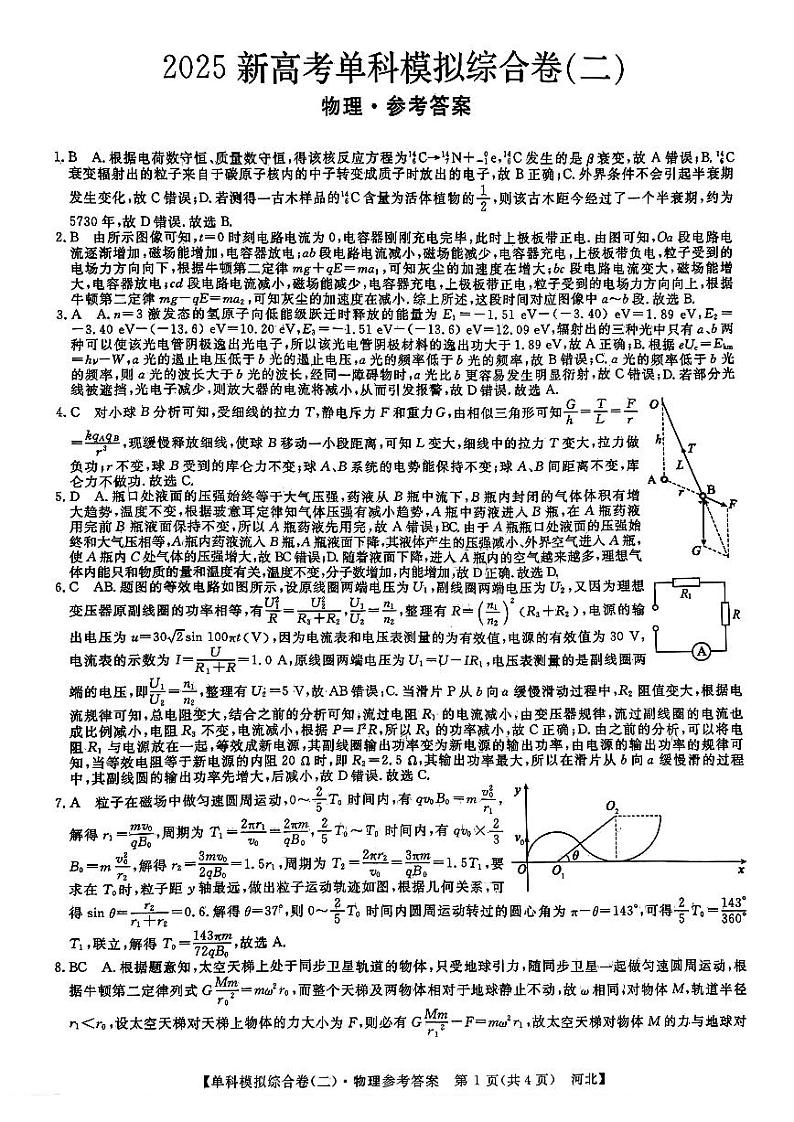 2025 新高考单科模拟综合卷(二)
物理·参考答案
1. B A. 根据电荷数守恒、质量数守恒,得该核反应方程为¹⁴₆C→¹⁴₇N+₋₁⁰e,¹⁴₆C 发生的是 β 衰变,故 A 错误;B. ¹⁴₆C
衰变辐射出的粒子来自于碳原子核内的中子转变成质子时放出的电子,故 B 正确;C. 外界条件不会引起半衰期
发生变化,故 C 错误;D. 若测得一古木样品的¹⁴₆C 含量为活体植物的1/2,则该古木距今经过了一个半衰期,约为
5730 年,故 D 错误. 故选 B.
2. B 由所示图像可知,t=0 时刻电路电流为 0,电容器刚刚充电完毕,此时上极板带正电. 由图可知,Oa 段电路电
流逐渐增加,磁场能增加,电容器放电;ab 段电路电流减小,磁场能减少,电容器充电,上极板带负电,粒子受到的
电场力方向向下,根据牛顿第二定律 mg+qE=ma₁,可知灰尘的加速度在增大;bc 段电路电流变大,磁场能增
大,电容器放电;cd 段电路电流减小,磁场能减少,电容器充电,上极板带正电,粒子受到的电场力方向向上,根据
牛顿第二定律 mg-qE=ma₂,可知灰尘的加速度在减小. 综上所述,这段时间对应图像中 a~b 段. 故选 B.
3. A A. n=3 激发态的氢原子向低能级跃迁时释放的能量为 E₁=-1.51 eV-(-3.40) eV=1.89 eV,E₂=
-3.40 eV-(-13.6) eV=10.20 eV,E₃=-1.51 eV-(-13.6) eV=12.09 eV,辐射出的三种光中只有 a、b 两
种可以使该光电管阴极逸出光电子,所以该光电管阴极材料的逸出功大于 1.89 eV,故 A 正确;B. 根据 eUc=Ekm
=hν-W,a 光的遏止电压低于 b 光的遏止电压,a 光的频率低于 b 光的频率,故 B 错误;C. a 光的频率低于 b 光
的频率,则 a 光的波长大于 b 光的波长,经同一障碍物时,a 光比 b 更容易发生明显衍射,故 C 错误;D. 若部分光
线被遮挡,光电子减少,则放大器的电流将减小,从而引发报警,故 D 错误. 故选 A.
4. C 对小球 B 分析可知,受细线的拉力 T,静电斥力 F 和重力G,由相似三角形可知G/h=T/L=F/r
=kqAqB/r³,现缓慢释放细线,使球 B 移动一小段距离,可知 L 变大,细线中的拉力 T 变大,拉力做
负功;r 不变,球 B 受到的库仑力不变;球 A、B 系统的电势能保持不变;球 A、B 间距离不变,库
仑力不做功. 故选 C.
O
h
T
L
A
r
B
F
G
5. D A. 瓶口处液面的压强始终等于大气压强,药液从 B 瓶中流下,B 瓶内封闭的气体体积有增
大趋势,温度不变,根据玻意耳定律知气体压强有减小趋势,A 瓶中药液进入 B 瓶,在 A 瓶药液
用完前 B 瓶液面保持不变,所以 A 瓶药液先用完,故 A 错误;BC. 由于 A 瓶瓶口处液面的压强始
终和大气压相等,A 瓶内药液流入 B 瓶,A 瓶液面下降,其液体产生的压强减小,外界空气进入 A 瓶,
使 A 瓶内 C 处气体的压强增大,故 BC 错误;D. 随着液面下降,进入 A 瓶内的空气越来越多,理想气
体内能只和物质的量和温度有关,温度不变,分子数增加,内能增加,故 D 正确. 故选 D.
6. C AB. 题图的等效电路如图所示,设原线圈两端电压为 U₁,副线圈两端电压为 U₂,又因为理想
变压器原副线圈的功率相等,有U₁²/R=U₂²/(R₃+R₂),U₁/U₂=n₁/n₂,整理有 R=(n₁/n₂)²(R₃+R₂),电源的输
出电压为 u=30√2sin 100πt(V),因为电流表和电压表测量的为有效值,电源的有效值为 30 V,
电流表的示数为 I=U/(R₁+R)=1.0 A,原线圈两端电压为 U₁=U-IR₁,电压表测量的是副线圈两
R₁
R
A
端的电压,即U₁/U₂=n₁/n₂,整理有 U₂=5 V,故 AB 错误;C. 当滑片 P 从 b 向 a 缓慢滑动过程中,R₂ 阻值变大,根据电
流规律可知,总电阻变大,结合之前的分析可知,流过电阻 R₁ 的电流减小,由变压器规律,流过副线圈的电流也
成比例减小,电阻 R₃ 不变,电流减小,根据 P=I²R,所以 R₃ 的功率减小,故 C 正确;D. 由之前的分析,可以将电
阻 R₁ 与电源放在一起,等效成新电源,其副线圈输出功率变为新电源的输出功率,由电源的输出功率的规律可
知,当等效电阻等于新电源的内阻 20 Ω 时,即 R₂=2.5 Ω,其输出功率最大,所以在滑片从 b 向 a 缓慢滑的过程
中,其副线圈的输出功率先增大,后减小,故 D 错误. 故选 C.
7. A 粒子在磁场中做匀速圆周运动,0~2/5T₀ 时间内,有 qv₀B₀=mv₀²/r₁,
解得 r₁=mv₀/qB₀,周期为 T₁=2πr₁/v₀=2πm/qB₀,2/5T₀~T₀ 时间内,有 qv₀×2/3
B₀=mv₀²/r₂,解得 r₂=3mv₀/2qB₀=1.5r₁,周期为 T₂=2πr₂/v₀=3πm/qB₀=1.5T₁,要
求在 T₀时,粒子距 y 轴最远,做出粒子运动轨迹如图,根据几何关系,可
y
O₂
v₀
θ
O
O₁
x
得 sin θ=r₂/(r₁+r₂)=0.6. 解得 θ=37°,则 0~2/5T₀ 时间内圆周运动转过的圆心角为 π-θ=143°,可得2/5T₀=143°/360°
T₁,联立,解得 T₀=143πm/72qB₀,故选 A.
8. BC A. 根据题意知,太空天梯上处于同步卫星轨道的物体,只受地球引力,随同步卫星一起做匀速圆周运动,根
据牛顿第二定律列式 GMm/r₀²=mω²r₀,而整个天梯及两物体相对于地球静止不动,故 ω 相同;对物体 M,轨道半径
r₁<r₀,设太空天梯对天梯上物体的力大小为 F,则必有 GMm/r₁²-F=mω²r₁,故太空天梯对物体 M 的力与地球对
【单科模拟综合卷(二)·物理参考答案 第 1 页(共 4 页) 河北】